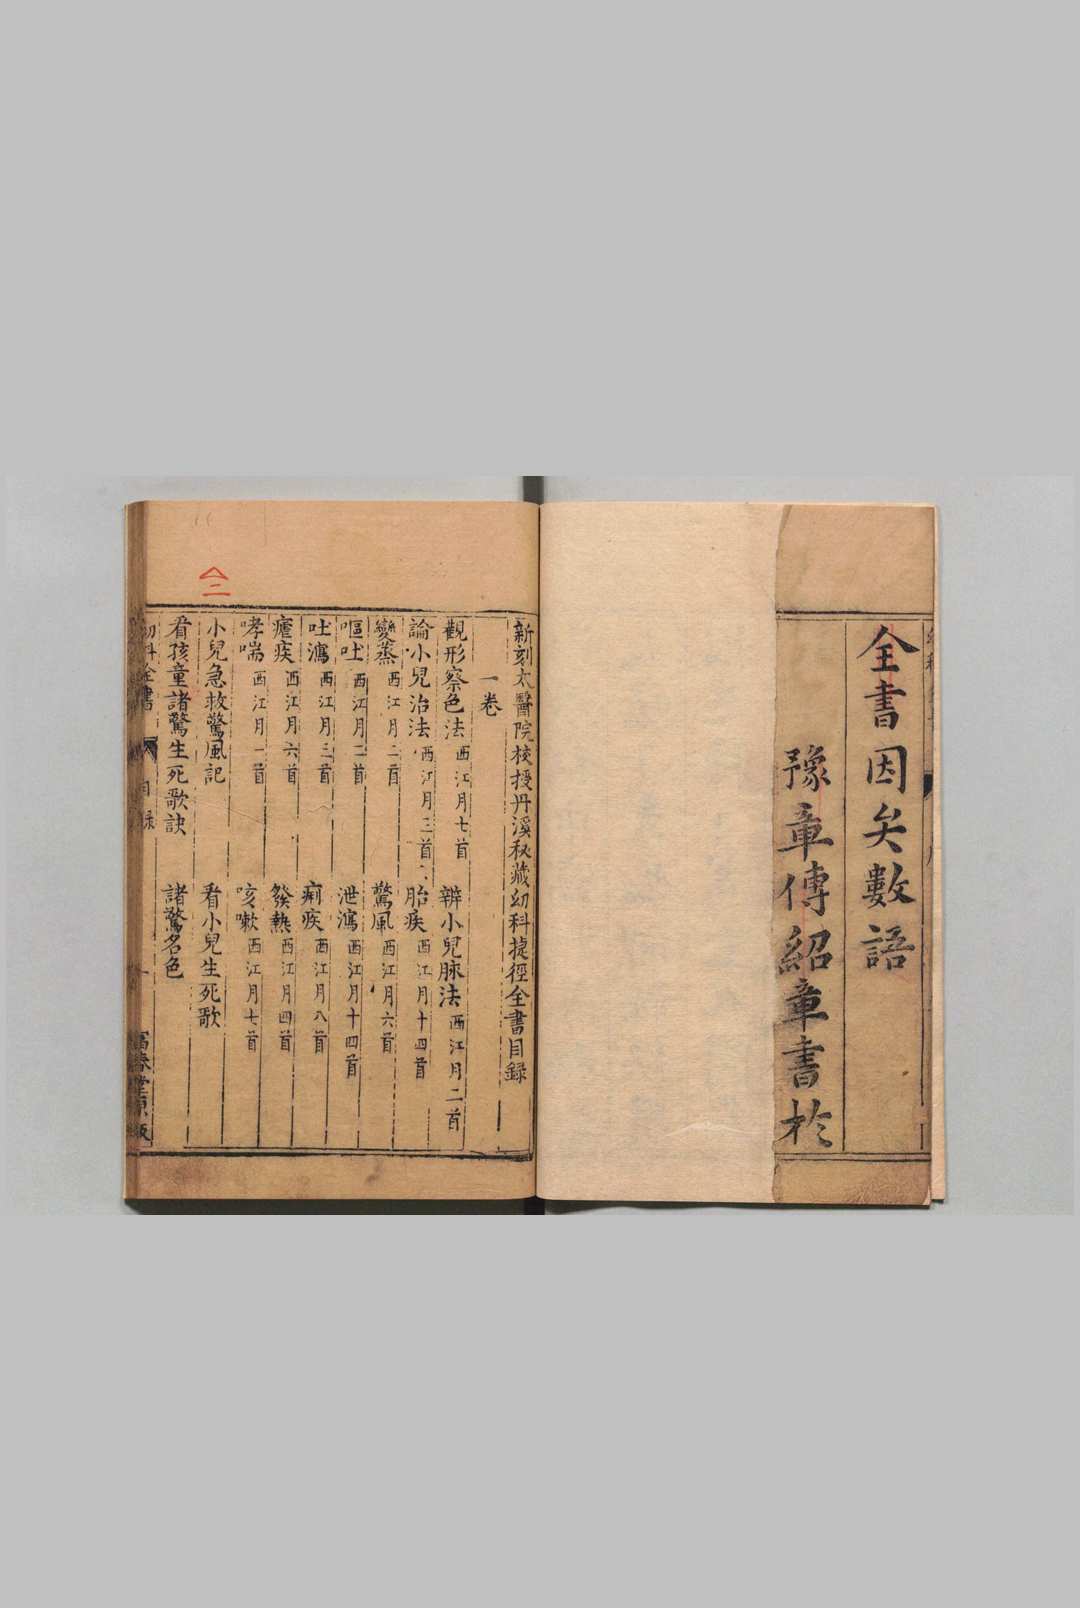 全書因矣數語
豫章傅紹章書於
新刻太醫院校授丹溪秘藏幼科捷徑全書目錄
一卷
觀形察色法 西江月七首 辨小兒脉法 西江月二首
論小兒治法 西江月三首 胎疾 西江月十四首
變蒸 西江月二首 驚風 西江月六首
嘔吐 西江月二首 泄瀉 西江月十四首
吐瀉 西江月三首 痢疾 西江月八首
瘧疾 西江月六首 發熱 西江月四首
哮喘 西江月一首 咳嗽 西江月七首
小兒急救驚風記 看小兒生死歌
看孩童諸驚生死歌訣 諸驚名色
幼科全書 目錄 一 富春堂原板
二